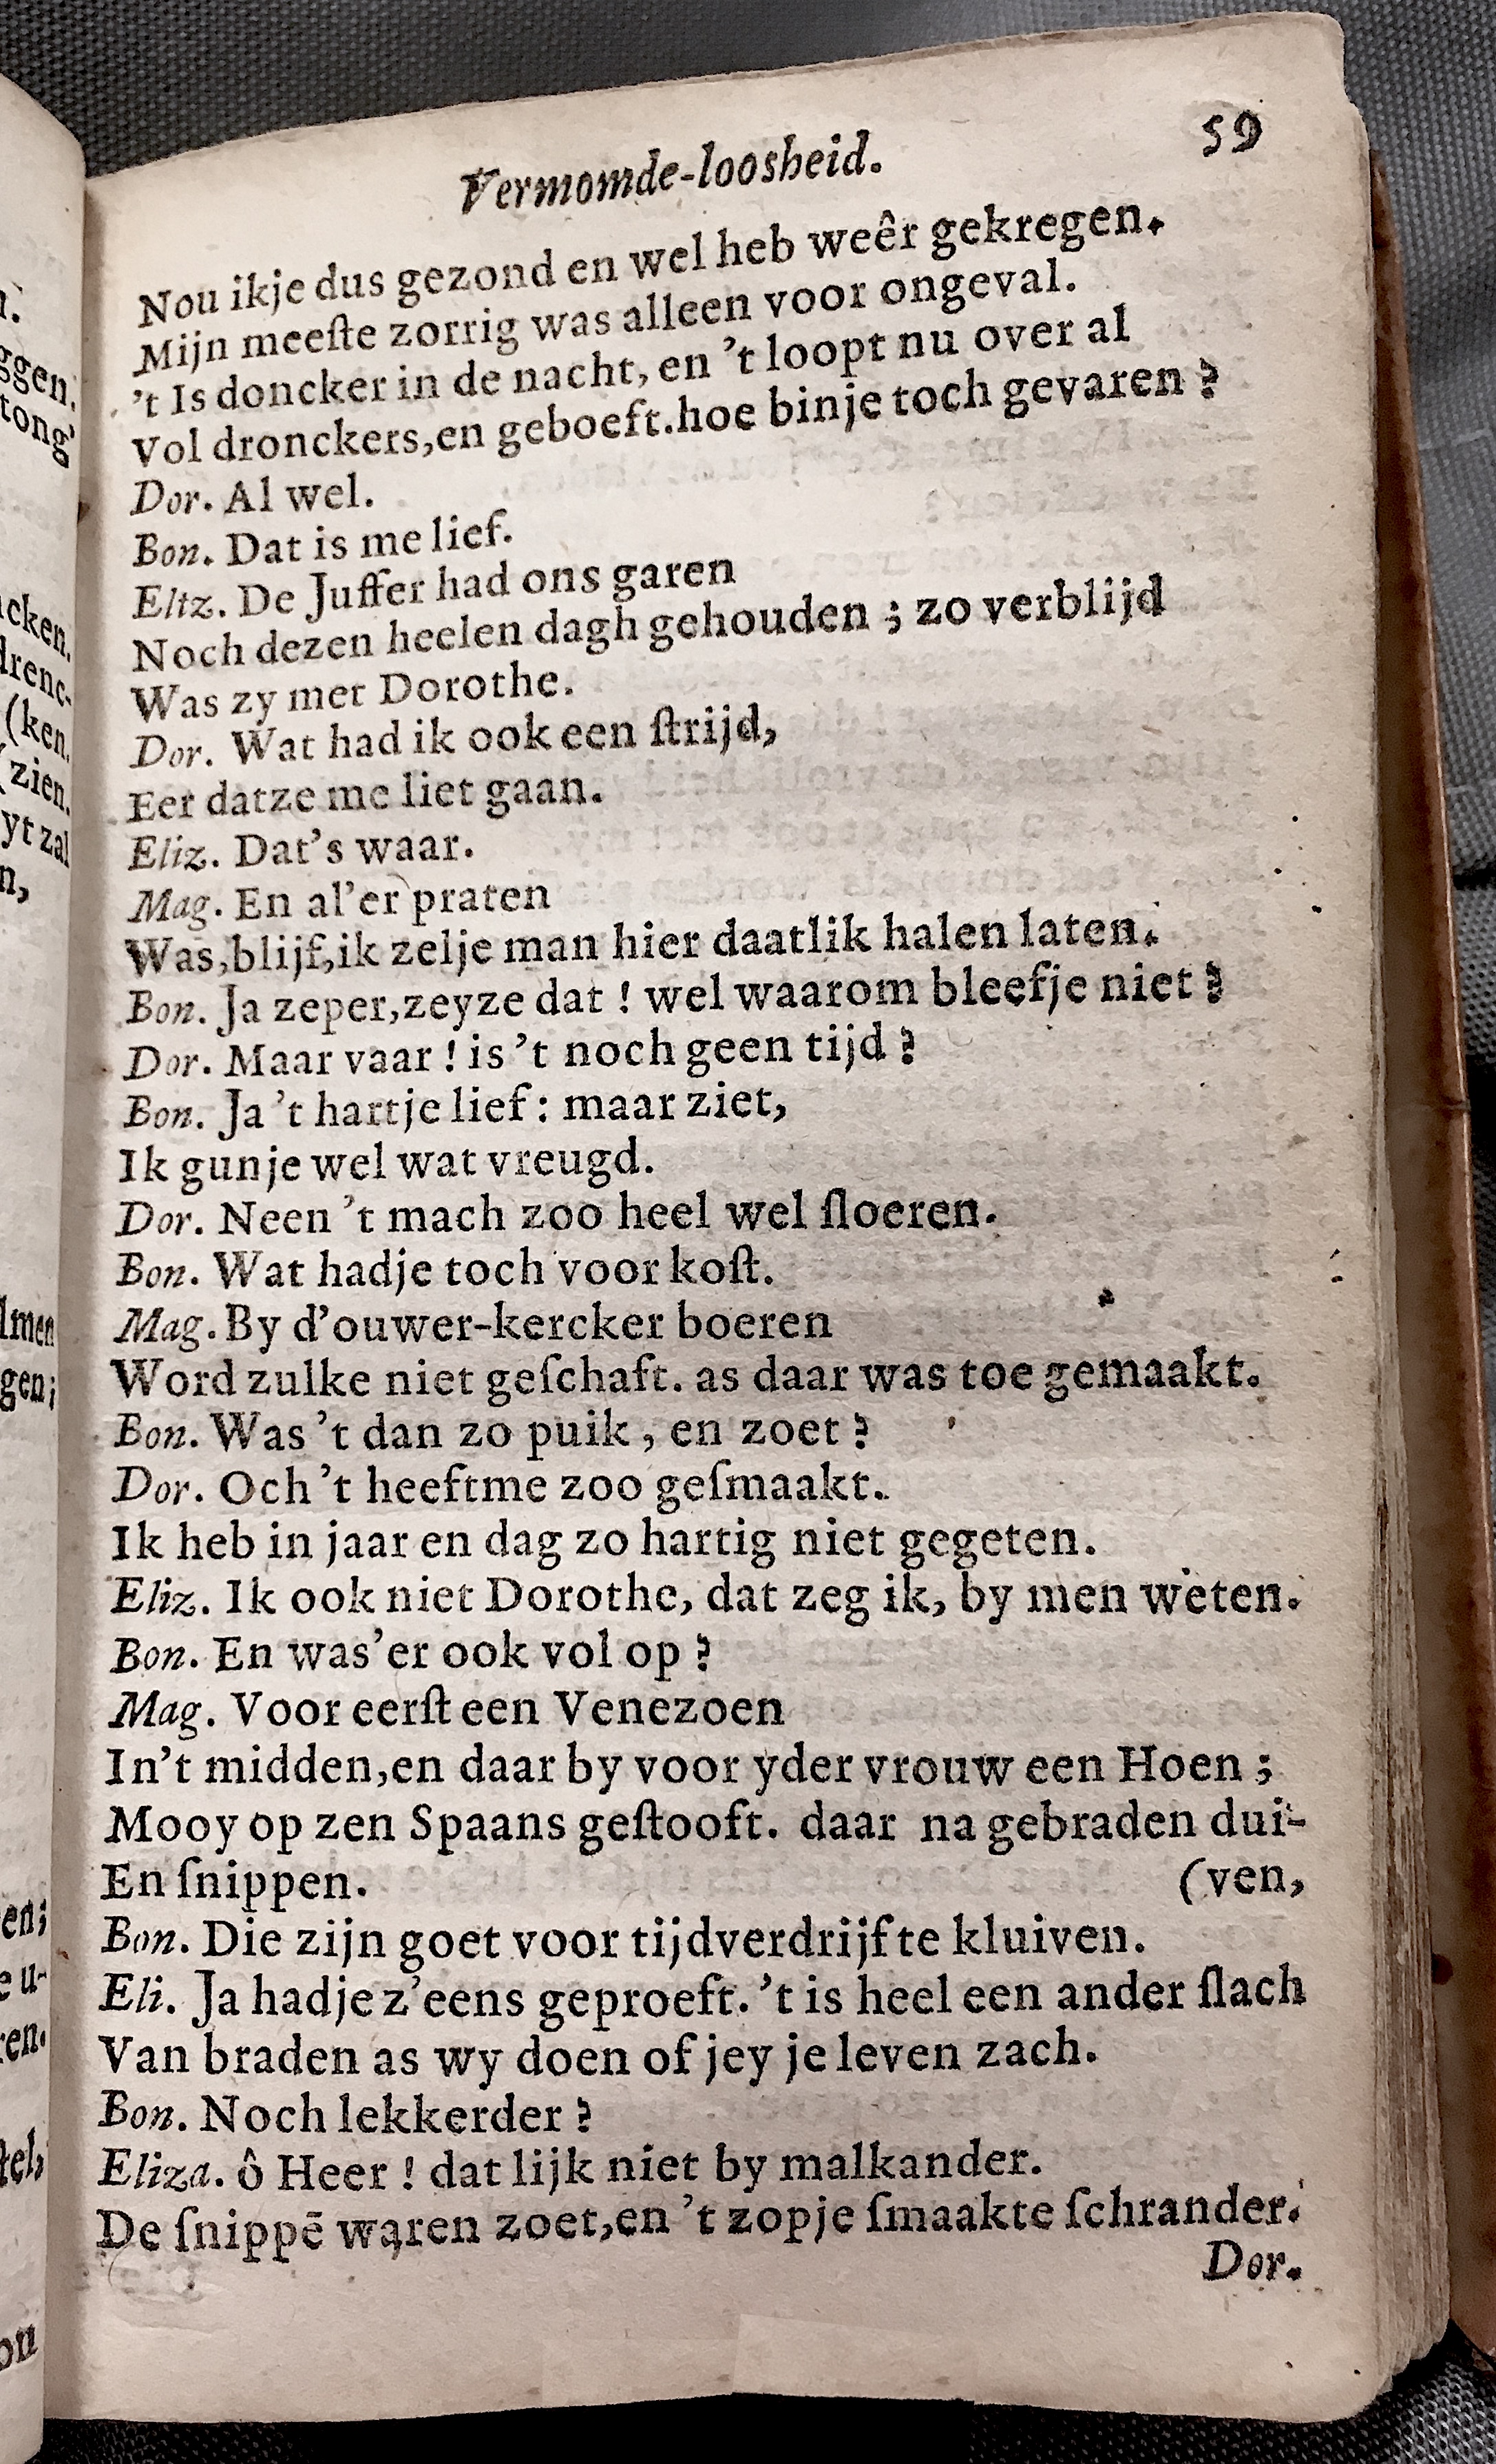 Vermomde-loosheid. 59
Nou ikje dus gezond en wel heb weêr gekregen.
Mijn meeſte zorrig was alleen voor ongeval.
't Is doncker in de nacht, en 't loopt nu over al
Vol dronckers,en geboeft.hoe binje toch gevaren?
Dor. Al wel.
Bon. Dat is me lief.
Eltz. De Juffer had ons garen
Noch dezen heelen dagh gehouden; zo verblijd
Was zy met Dorothe.
Dor. Wat had ik ook een ſtrijd,
Eer datze me liet gaan.
Eliz. Dat's waar.
Mag. En al'er praten
Was,blijf,ik zelje man hier daatlik halen laten.
Bon. Ja zeper,zeyze dat! wel waarom bleefje niet?
Dor. Maar vaar! is 't noch geen tijd?
Bon. Ja 't hartje lief: maar ziet,
Ik gunje wel wat vreugd.
Dor. Neen 't mach zoo heel wel ſloeren.
Bon. Wat hadje toch voor koſt.
Mag. By d'ouwer-kercker boeren
Word zulke niet geſchaft. as daar was toe gemaakt.
Bon. Was 't dan zo puik, en zoet?
Dor. Och 't heeftme zoo geſmaakt.
Ik heb in jaar en dag zo hartig niet gegeten.
Eliz. Ik ook niet Dorothe, dat zeg ik, by men weten.
Bon. En was'er ook vol op?
Mag. Voor eerſt een Venezoen
In't midden,en daar by voor yder vrouw een Hoen;
Mooy op zen Spaans geſtooft. daar na gebraden dui-
En ſnippen. (ven,
Bon. Die zijn goet voor tijdverdrijf te kluiven.
Eli. Ja hadje z'eens geproeft. 't is heel een ander ſlach
Van braden as wy doen of jey je leven zach.
Bon. Noch lekkerder?
Eliza. ô Heer! dat lijk niet by malkander.
De ſnippē waren zoet,en 't zopje ſmaakte ſchrander.
Dor.